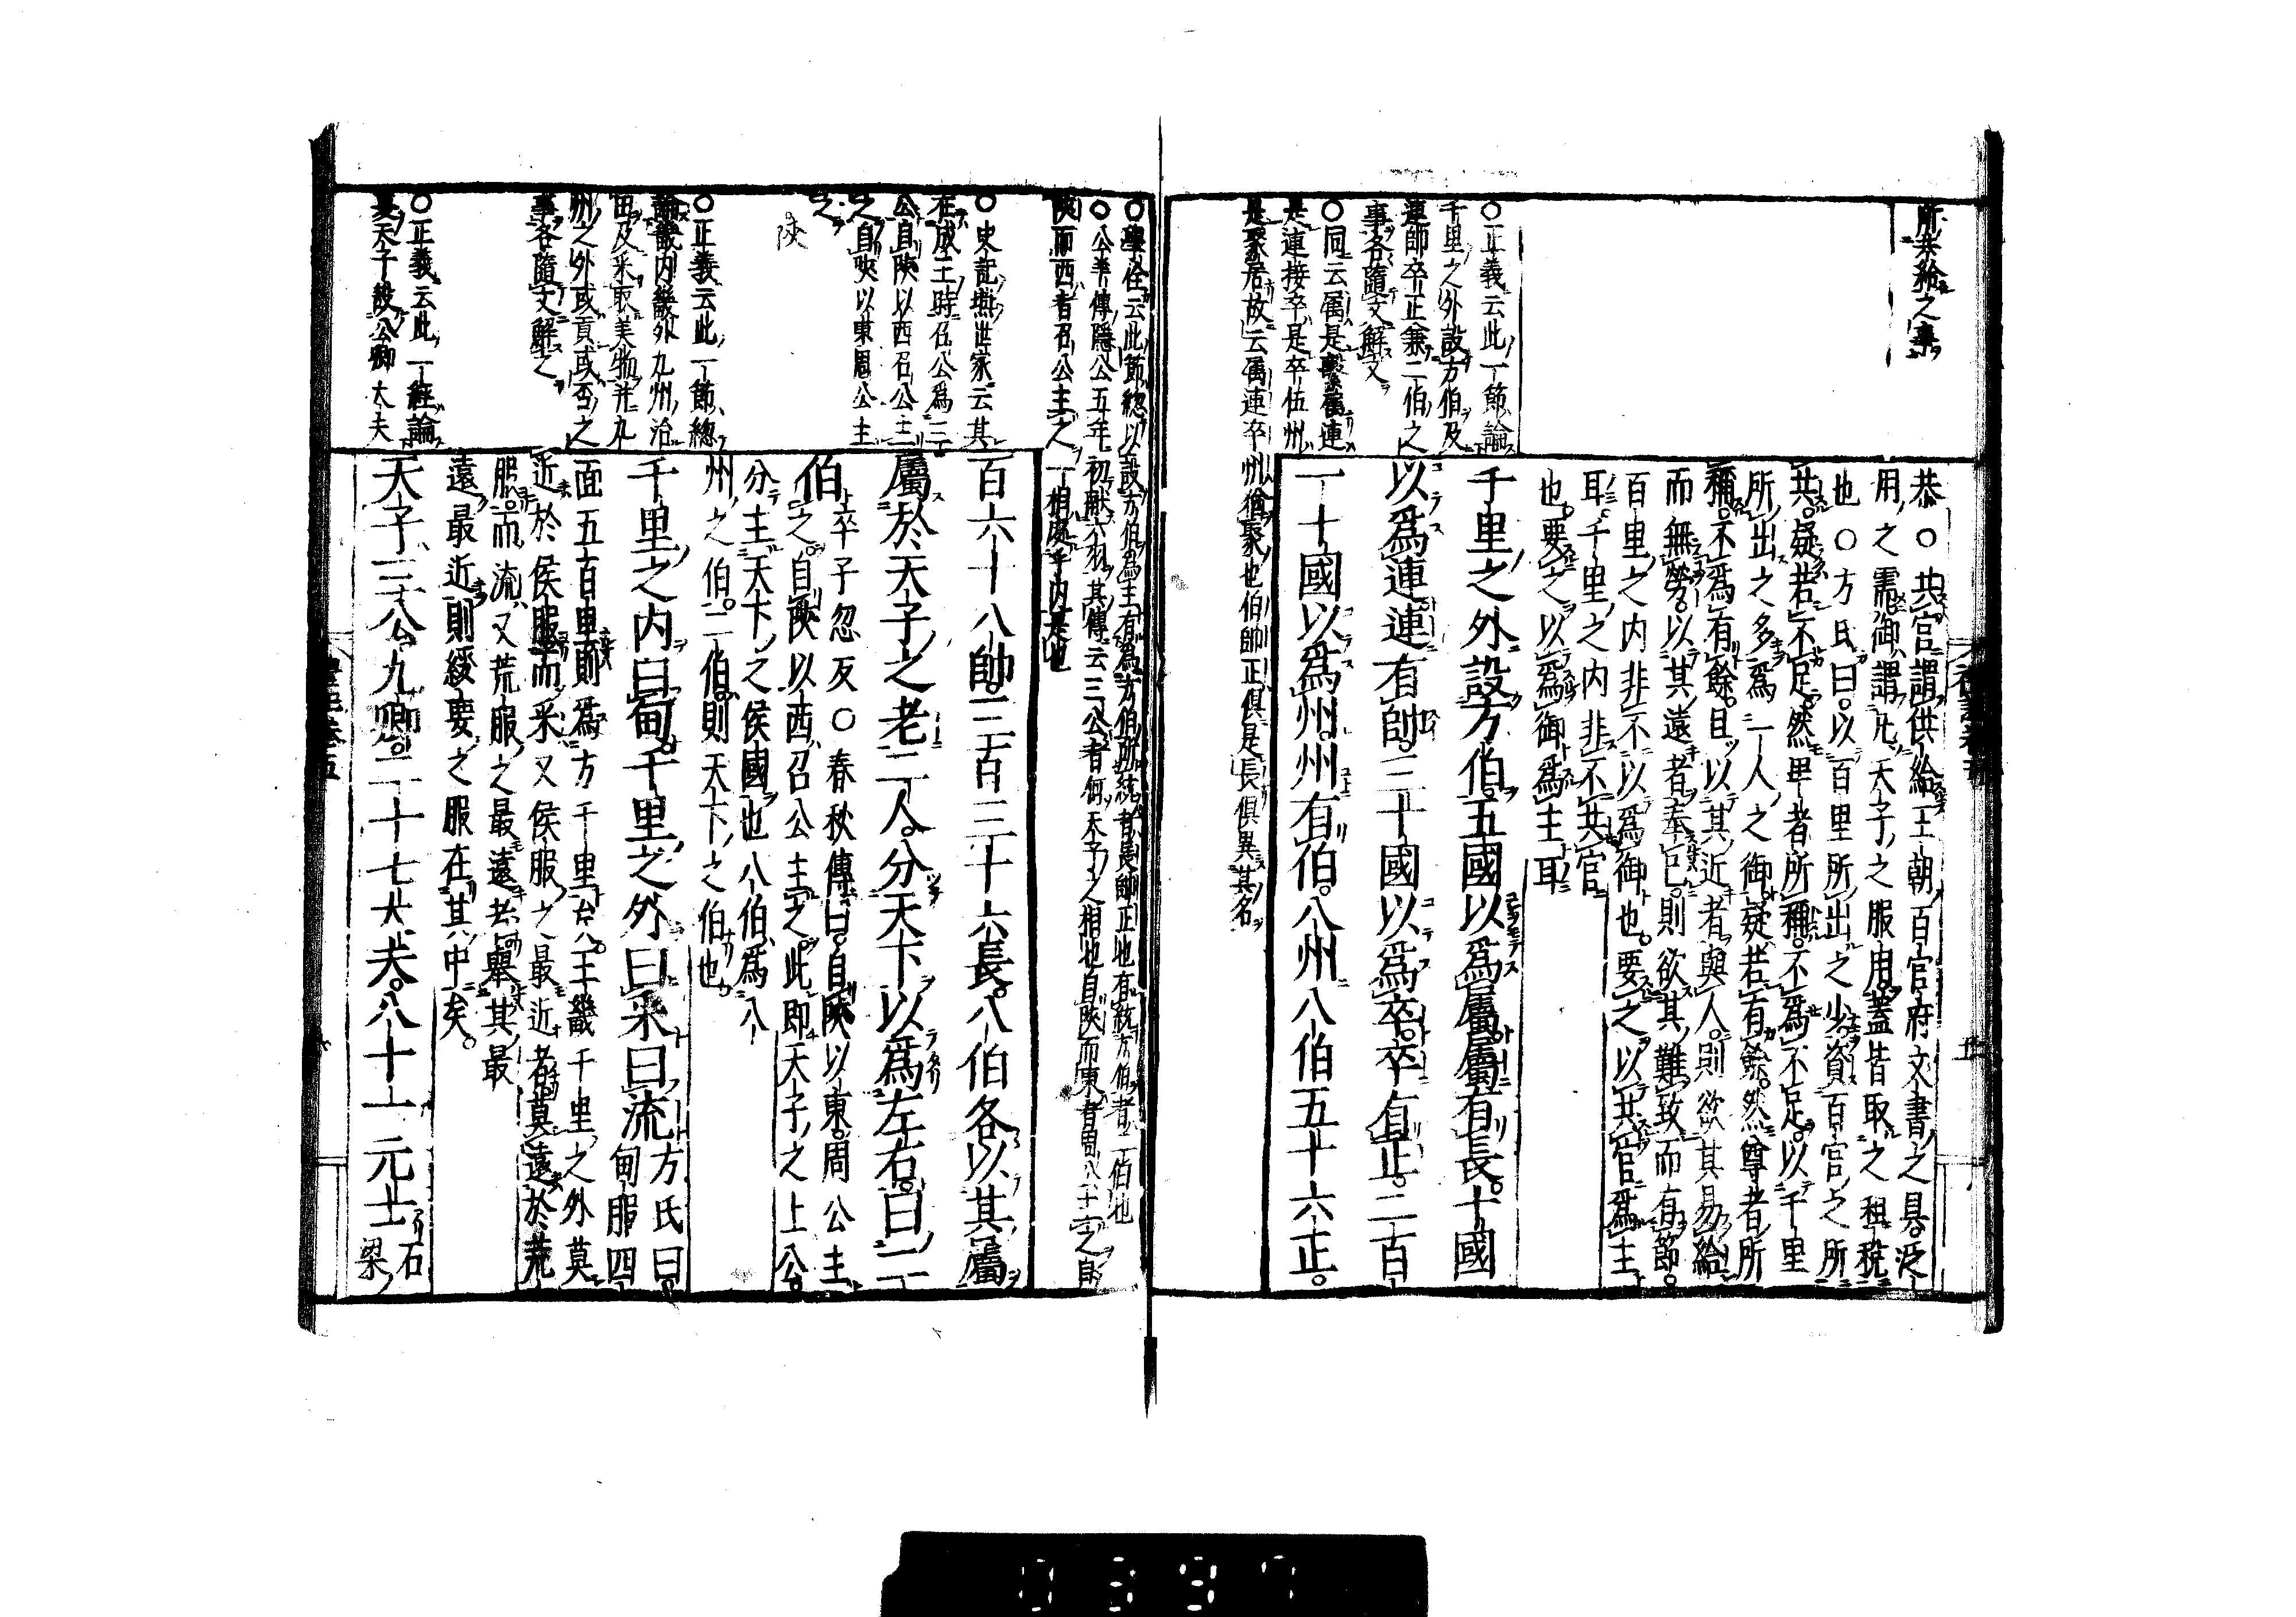 所共給之事
恭○共官謂供給王朝百官府文書之具泛
用之需御謂凡天子之服用蓋皆取之租稅
也○方氏曰以百里所出之少資百官之所
共疑若不足然卑者所稱不爲不足以千里
所出之多爲一人之御疑若有餘然尊者所
稱不爲有餘且以其近者與人則欲其易給
而無勞以其遠者奉已則欲其難致而有節
百里之内非不以爲御也要之以共官爲主
耳千里之内非不共官
也要之以爲御爲主耳
○正義云此一節論
千里之外設方伯及
連帥卒正兼二伯之
事各隨文解之
○同云属是繫属連
是連接卒是卒伍州
是聚居故云属連卒州猶聚也伯帥正俱是長俱異其名
千里之外設方伯五國以爲屬屬有長十國
以爲連連有帥三十國以爲卒卒有正二百
一十國以爲州州有伯八州八伯五十六正
云此節總以設方伯爲主有爲方伯所統者長帥正也有統方伯者二伯也
○公羊傳隱公五年初献六羽其傳云三公者何天子之相也自陝而東者周公主之自
陝而西者召公主之一相處乎内是也
百六十八帥三百三十六長八伯各以其屬
屬於天子之老二人分天下以爲左右曰二
伯
卒子忽反○春秋傳曰自陝以東周公主
之自陝以西召公主之此即天子之上公
分主天下之侯國也八伯爲八
州之伯二伯則天下之伯也
○史記燕世家云其
在成王時召公爲三
公自陝以西召公主
之自陝以東周公主
之
陝
千里之内曰甸千里之外曰采曰流
方氏曰
甸服四
面五百里則爲方千里矣王畿千里之外莫
近於侯服而采又侯服之最近者莫遠於荒
服而流又荒服之最遠者舉其最
遠最近則綏要之服在其中矣
○正義云此一節總
論畿内畿外九州治
田及采取美物并九
州之外或貢或否之
事各隨文解之
天子三公九卿二十七大夫八十一元士
石
梁
○正義云此一經論
夏天子設公卿大夫